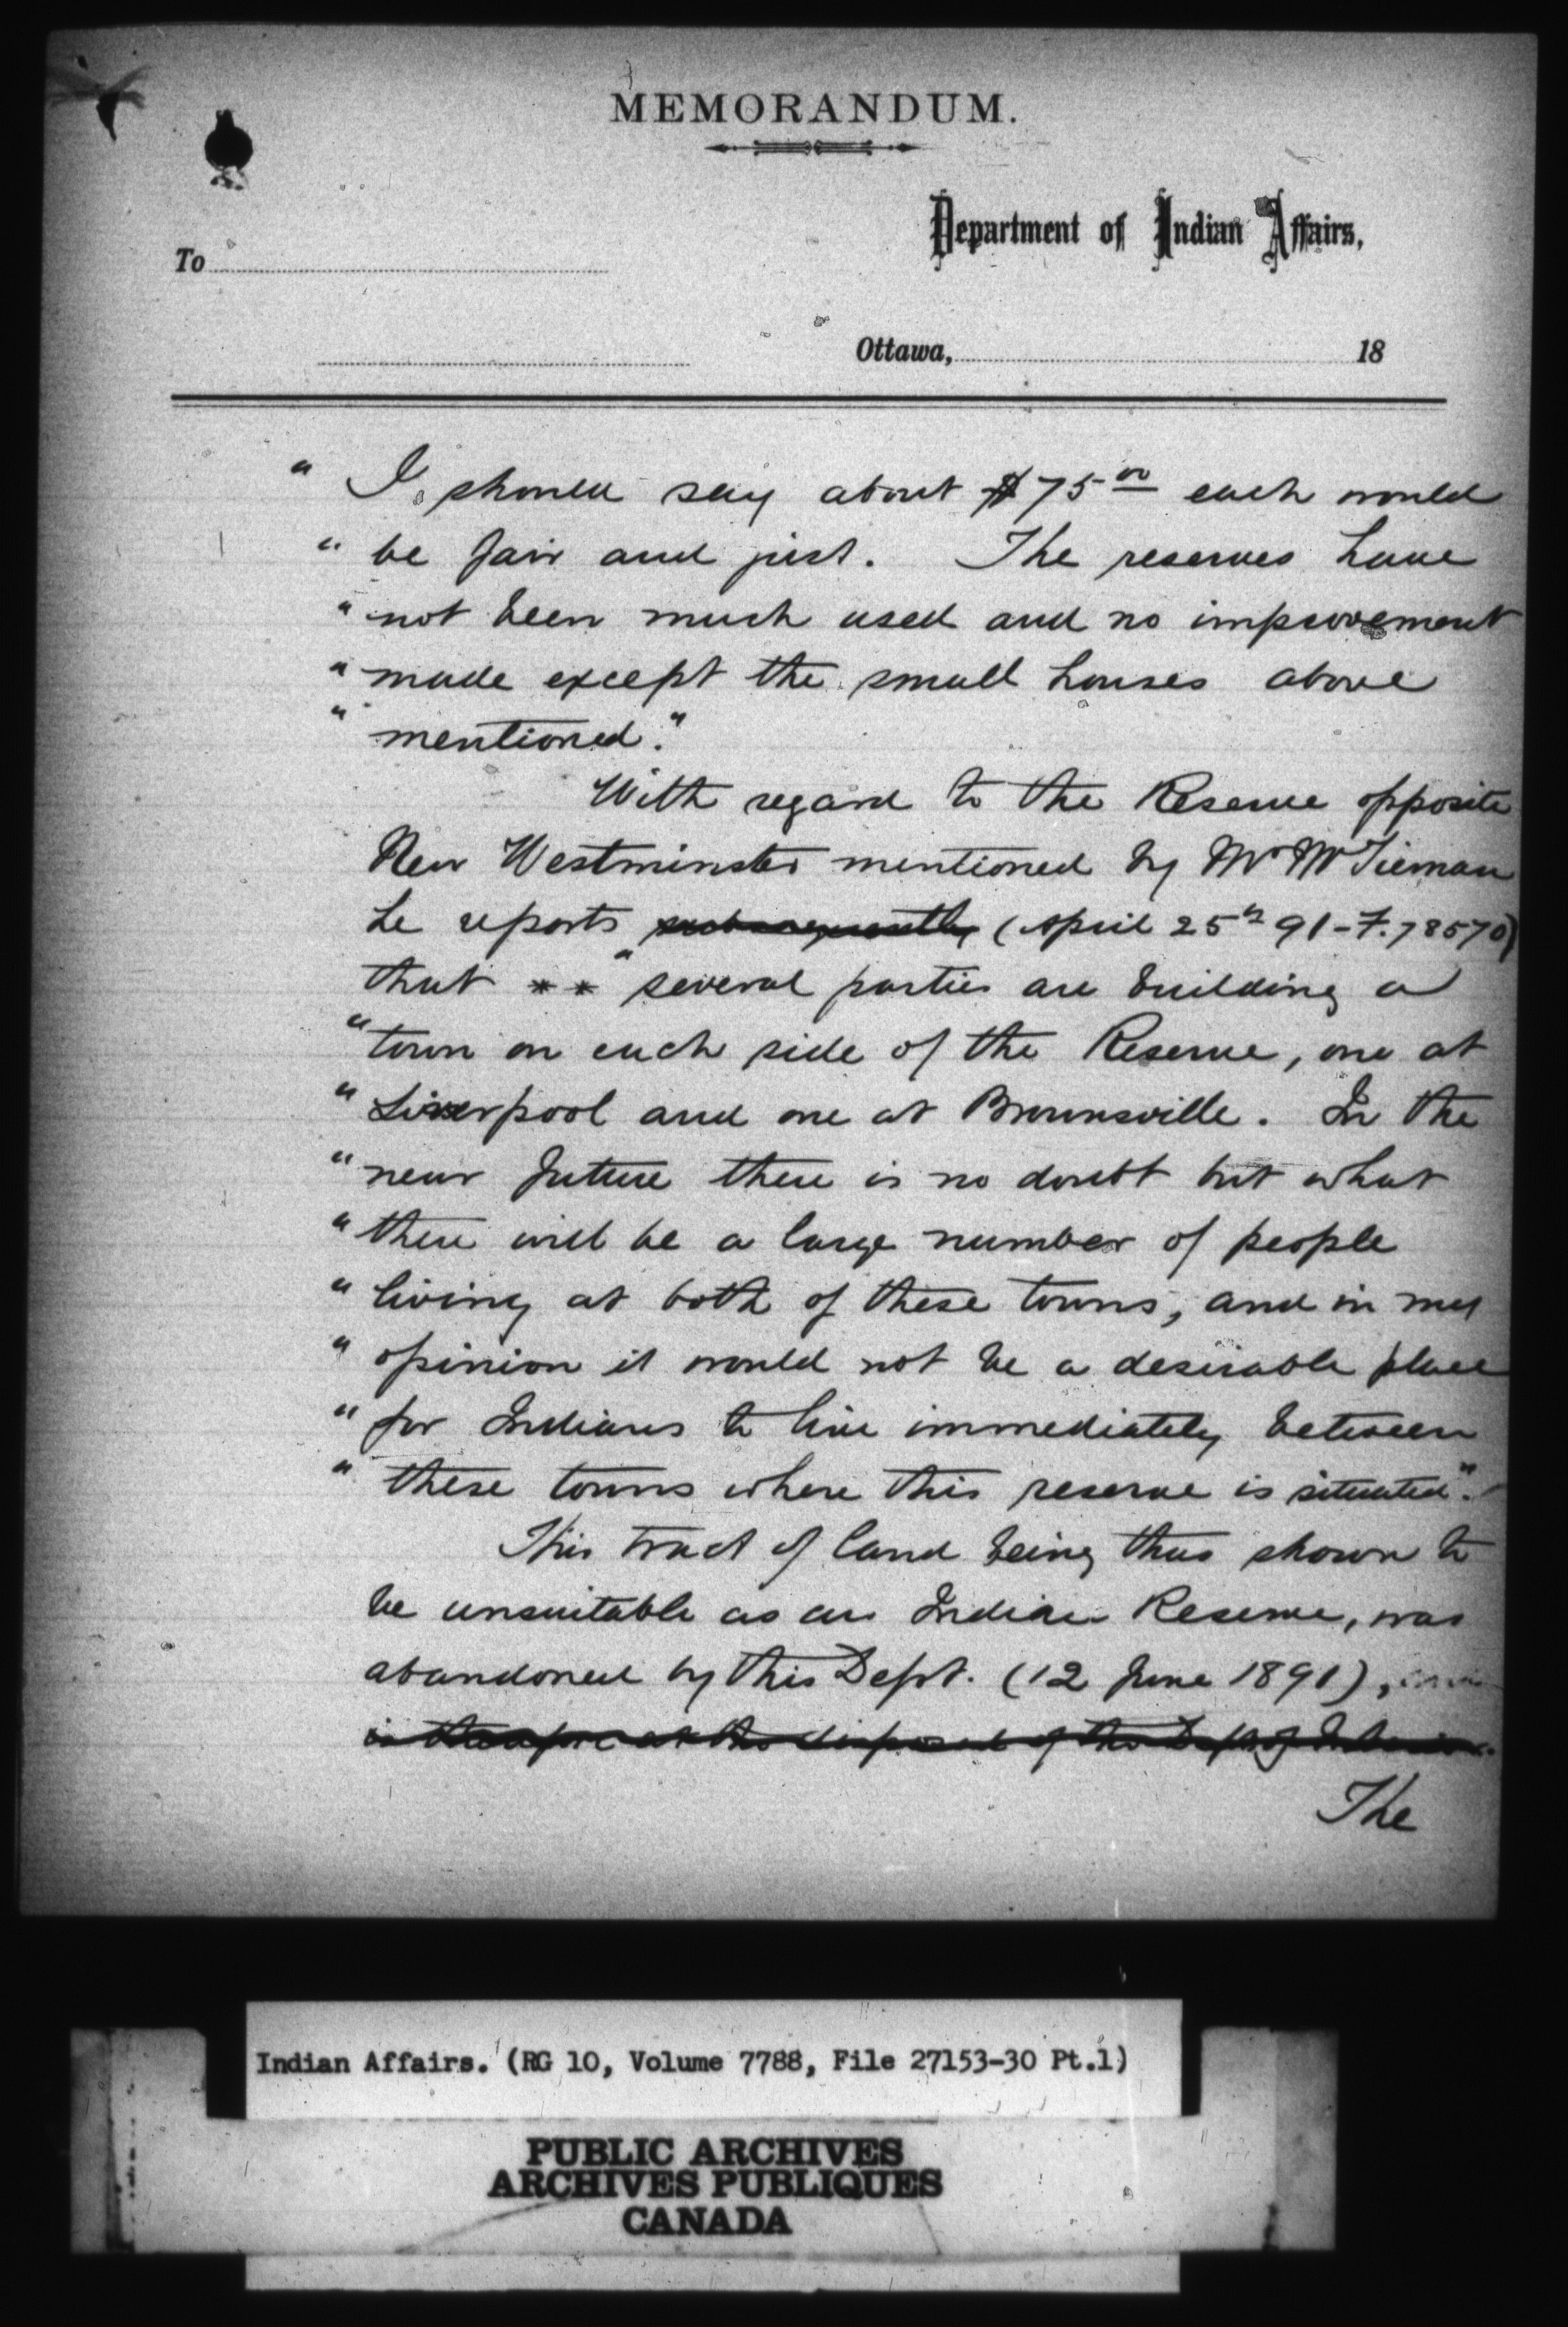 MEMORANDUM.
Department of Indian Affairs,
To
Ottawa, 18
" I should say about $75 00 each would
" be fair and just. The reserves have
" not been much used and no improvement
" made except the small houses above
" mentioned."
With regard to the Reserve opposite
New Westminster mentioned by Mr McTiernan
he reports subsequently (April 25th 91 - F. 78570)
that ** "several parties are building a
" town on each side of the Reserve, one at
" Liverpool and one at Brownsville. In the
" near future there is no doubt but what
" there will be a large number of people
" living at both of these towns, and in my
" opinion it would not be a desirable place
" for Indians to live immediately between
" these towns where this reserve is situated".
This tract of land being thus shown to
be unsuitable as an Indian Reserve, was
abandoned by this Dept. (12 June 1891),
is therefore at the disposal of the Dept of Interior.
The
Indian Affairs. (RG 10, Volume 7788, File 27153-30 Pt.1)
PUBLIC ARCHIVES
ARCHIVES PUBLIQUES
CANADA